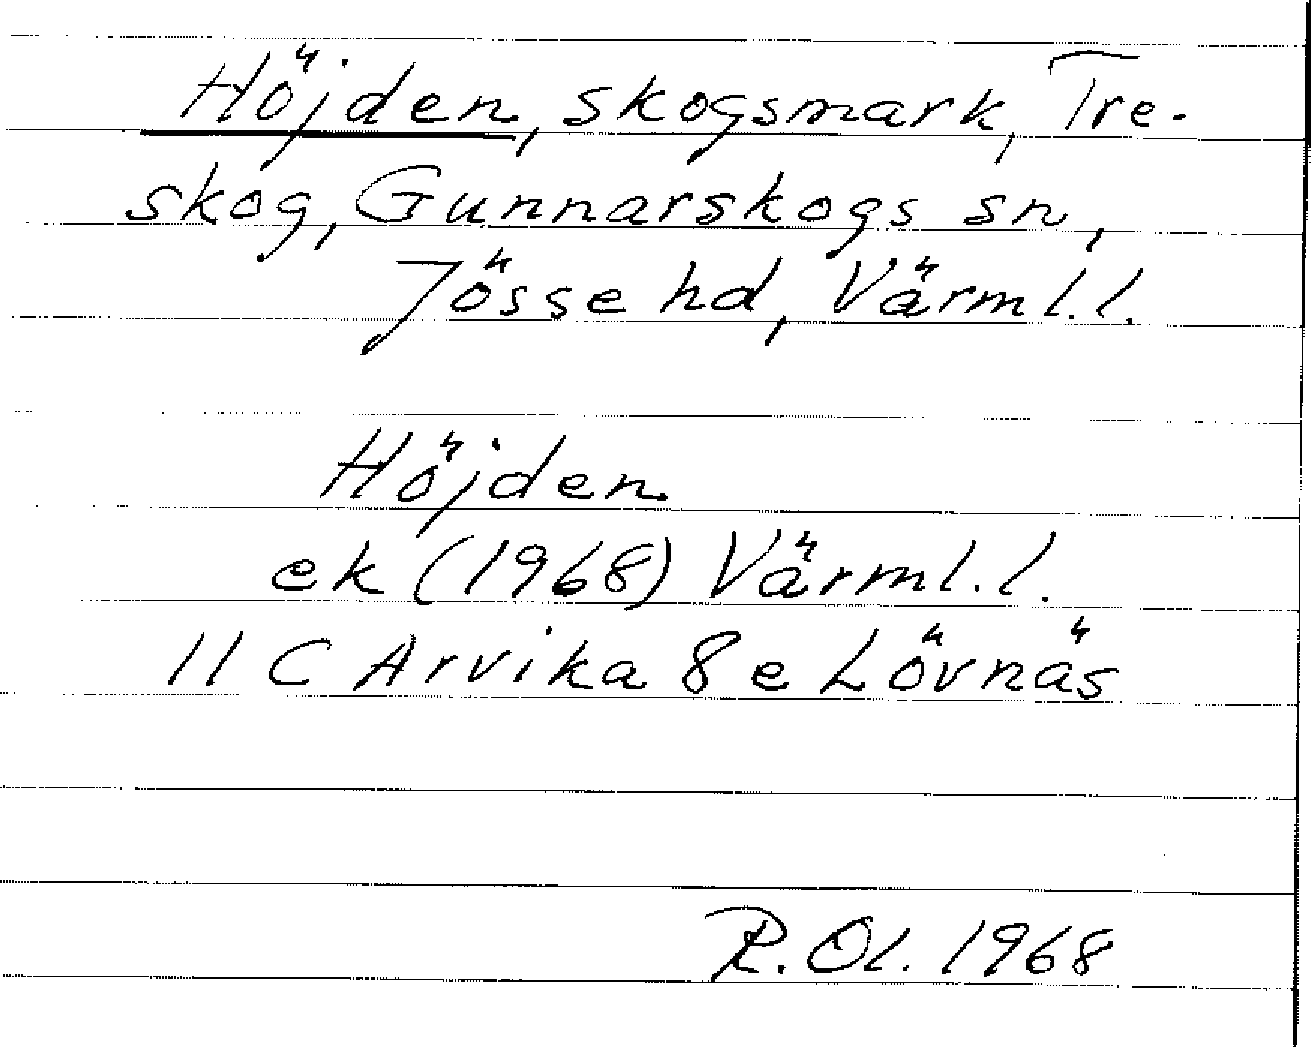 Höjden, skogsmark, Tre-
skog, Gunnarskogs sn,
Jösse hd, Värml. l.
Höjden
ek (1968) Värml. l.
11 C Arvika 8 e Lövnäs
R. Ol. 1968